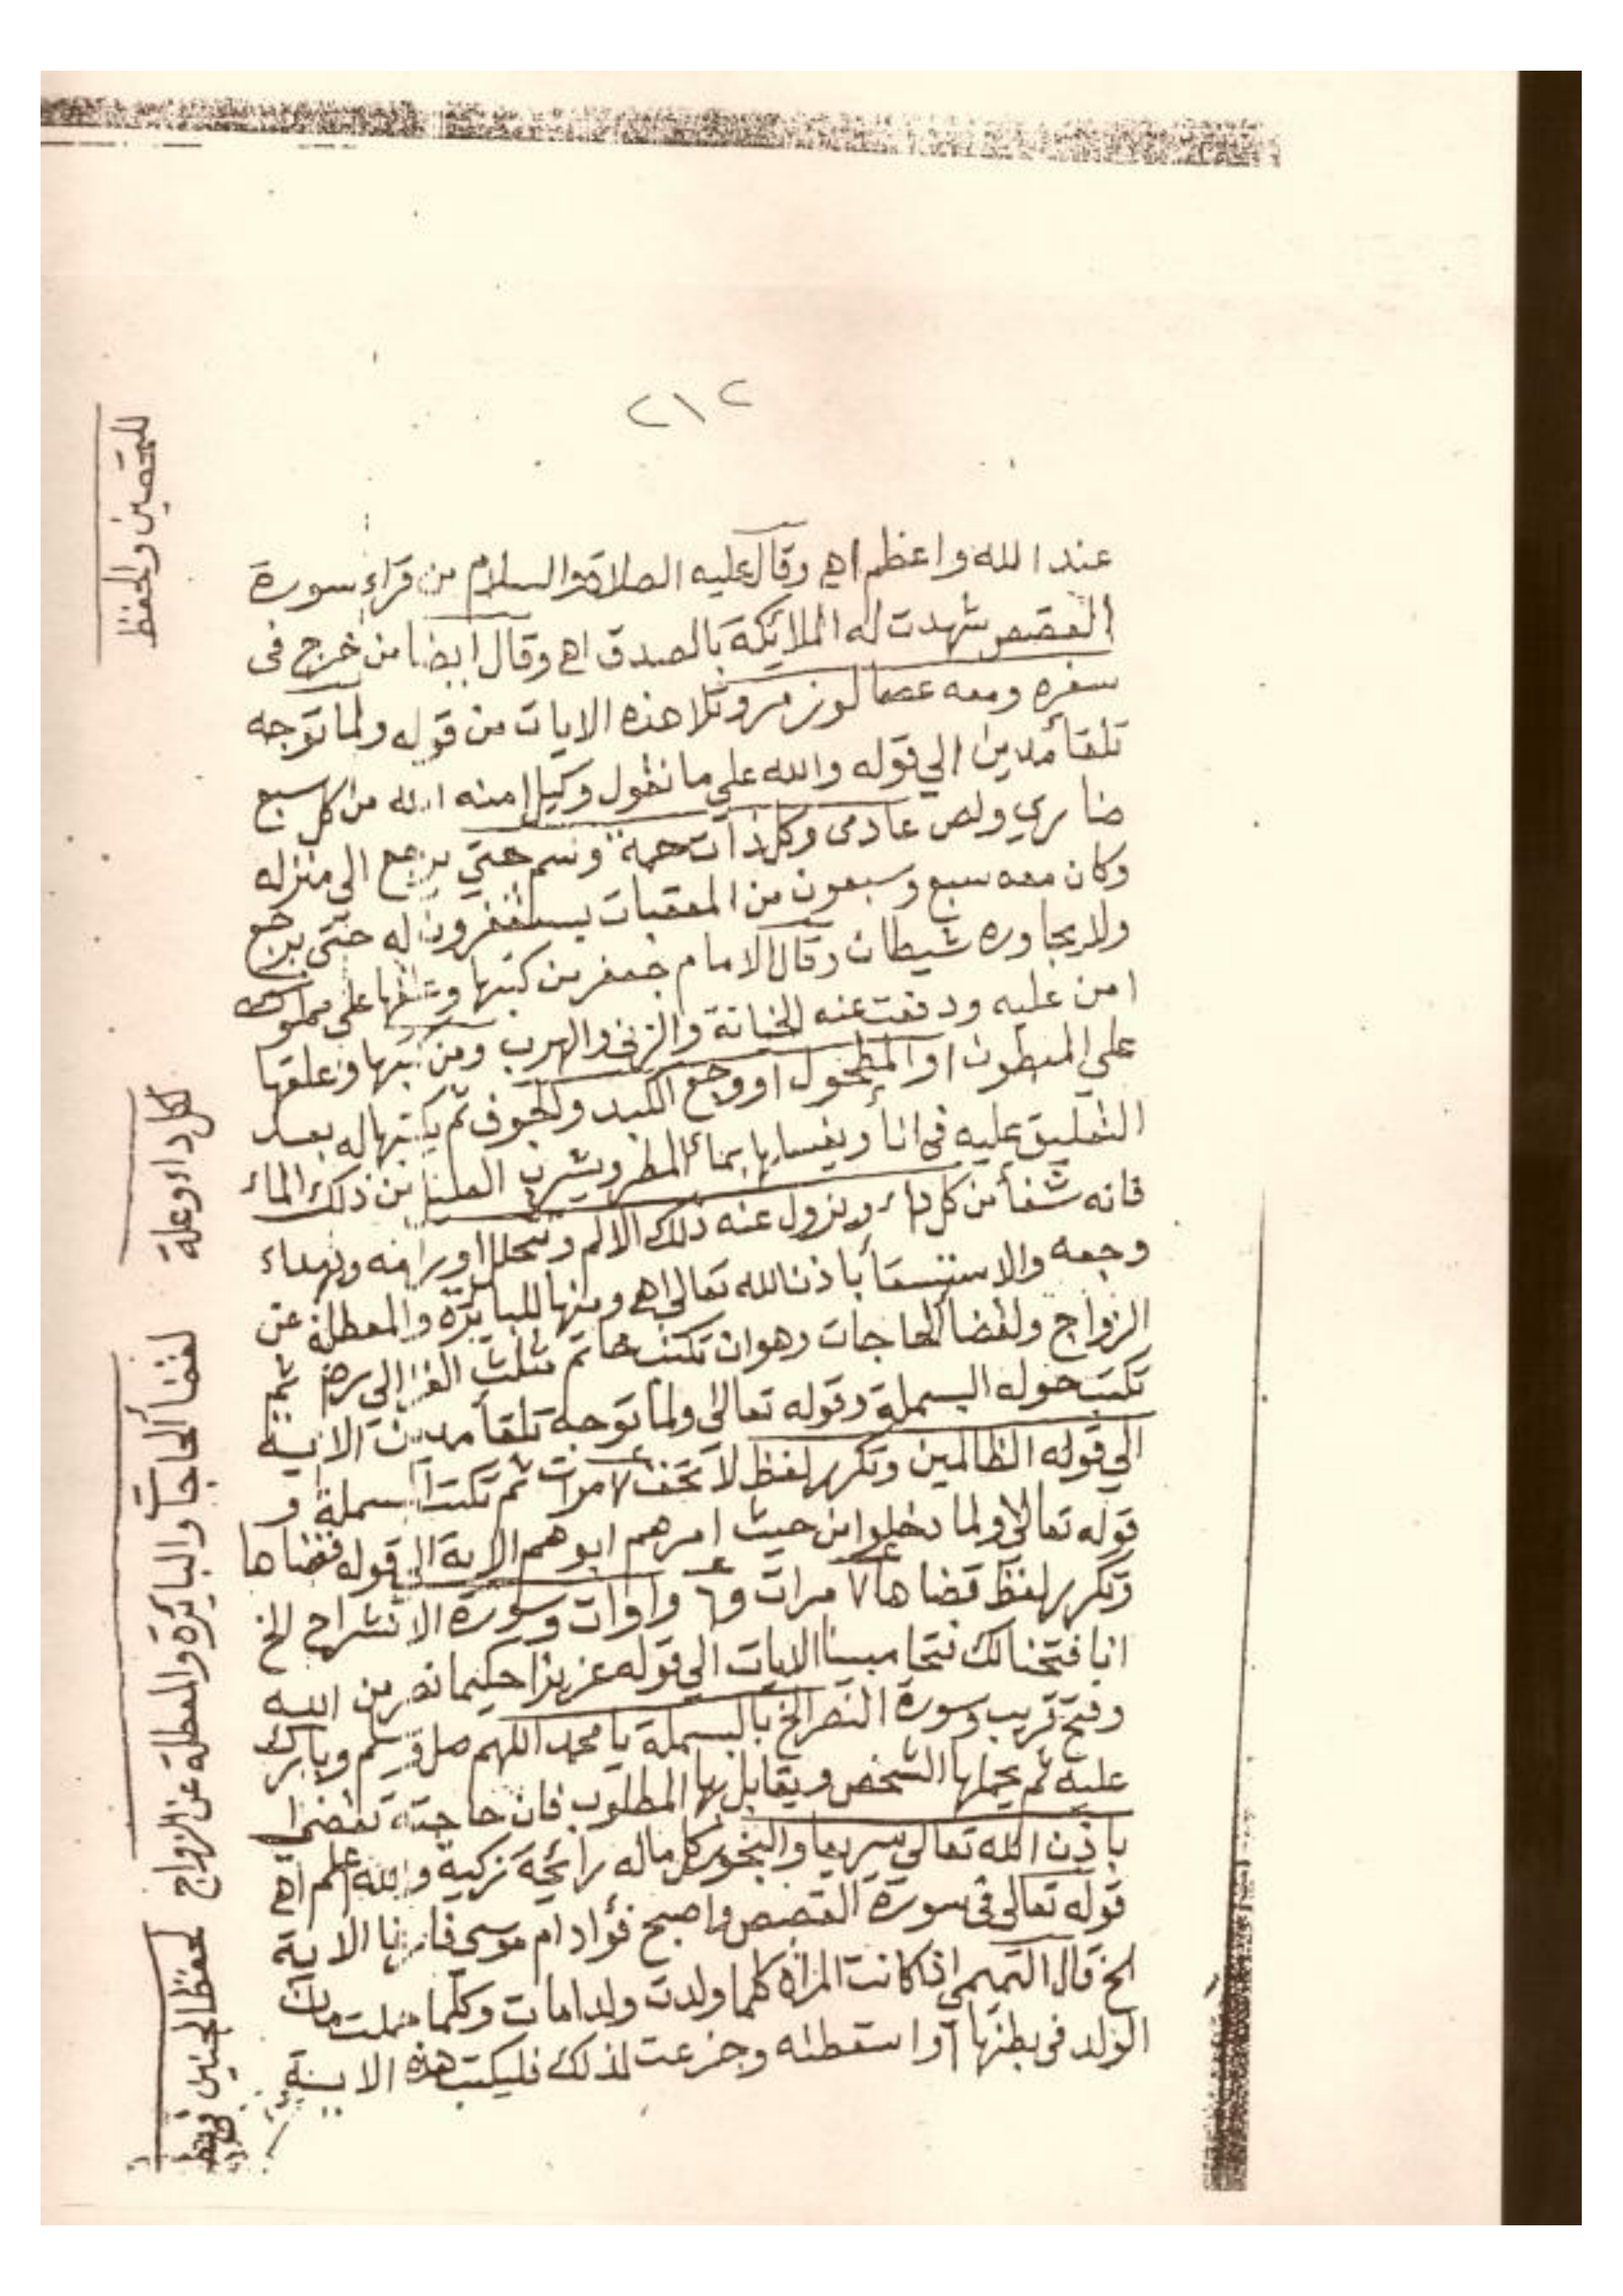 ٢١٢
عند الله واعظم اهـ وقال عليه الصلاة والسلام من قراء سورة
القصص شهدت له الملائكة بالصدق اهـ وقال ايضا من خرج فى
سفره ومعه عصا لوز مر وتلا هذه الايات من قوله ولما توجه
تلقأ مدين الي قوله والله علي ما نقول وكيل امنه الله من كل سبع
ضاري ولص عادى وكل ذات حمة وسم حتي يرجع الى منزله
وكان معه سبع وسبعون من المعقبات يستغفرون له حتى يرجع
ولا يجاوره شيطان وقال الامام جعفر من كتبها وعلقها على مملوكه
امن عليه ودفعت عنه الخيانة والزنى والهرب ومن كتبها وعلقها
على المبطون او المطحول او وجع الكبد والجوف ثم يكتبها له بعد
التعليق عليه فى انأ ويغسلها بمأ المطر ويشرب العليل من ذلك المأ
فانه شفأ من كل دأ ويزول عنه ذلك الالم وتتحلل اورامه ويهداء
وجعه والاستسقأ باذن الله تعالى اهـ ومنها للبائرة والمعطلة عن
الزواج ولقضأ الحاجات وهو ان تكتب خاتم مثلث الغزالى
تكتب حوله البسملة وقوله تعالى ولما توجه تلقأ مدين الاية
الي قوله الظالمين وتكرر لفظ لا تخف ٧ مرات ثم تكتب البسملة و
قوله تعالى ولما دخلوا من حيث امرهم ابوهم الاية الي قوله قضاها
وتكرر لفظ قضاها ٧ مرات و٦ واوات وسورة الانشراح الخ
انا فتحنا لك فتحا مبينا الايات الي قوله عزيزا حكيما نصر من الله
وفتح قريب وسورة النصر الخ بالبسملة يا محمد اللهم صل وسلم وبارك
عليه ثم يحملها الشخص ويقابل بها المطلوب فان حاجته تقضى
باذن الله تعالي سريعا والبخور كل ماله رائحة زكية والله اعلم اهـ
قوله تعالى فى سورة القصص واصبح فؤاد ام موسى فارغا الاية
الخ قال التميمي اذا كانت المرأة كلما ولدت ولدا مات وكلما حملت مات
الولد فى بطنها او اسقطته وجزعت لذلك فليكتب هذه الاية
للتحصين والحفظ
لكل داء وعلة
لقضأ الحاجات والبائرة والمعطلة عن الزواج
لحفظ الجنين فى